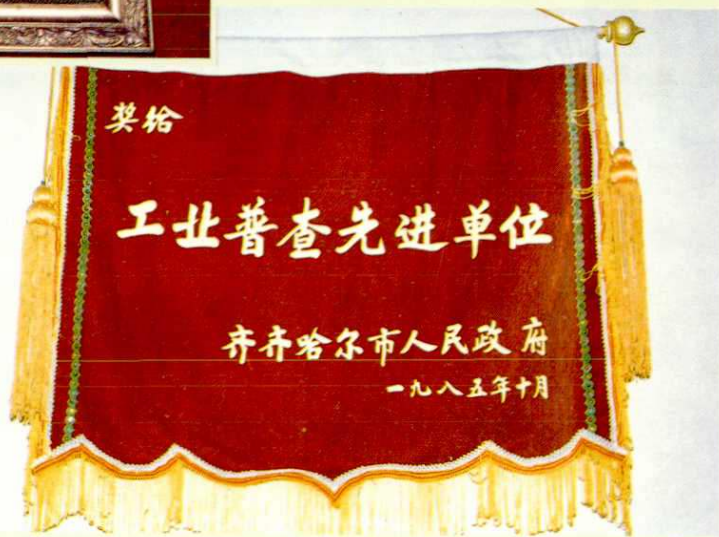 奖给
工业普查先进单位
齐齐哈尔市人民政府
一九八五年十月